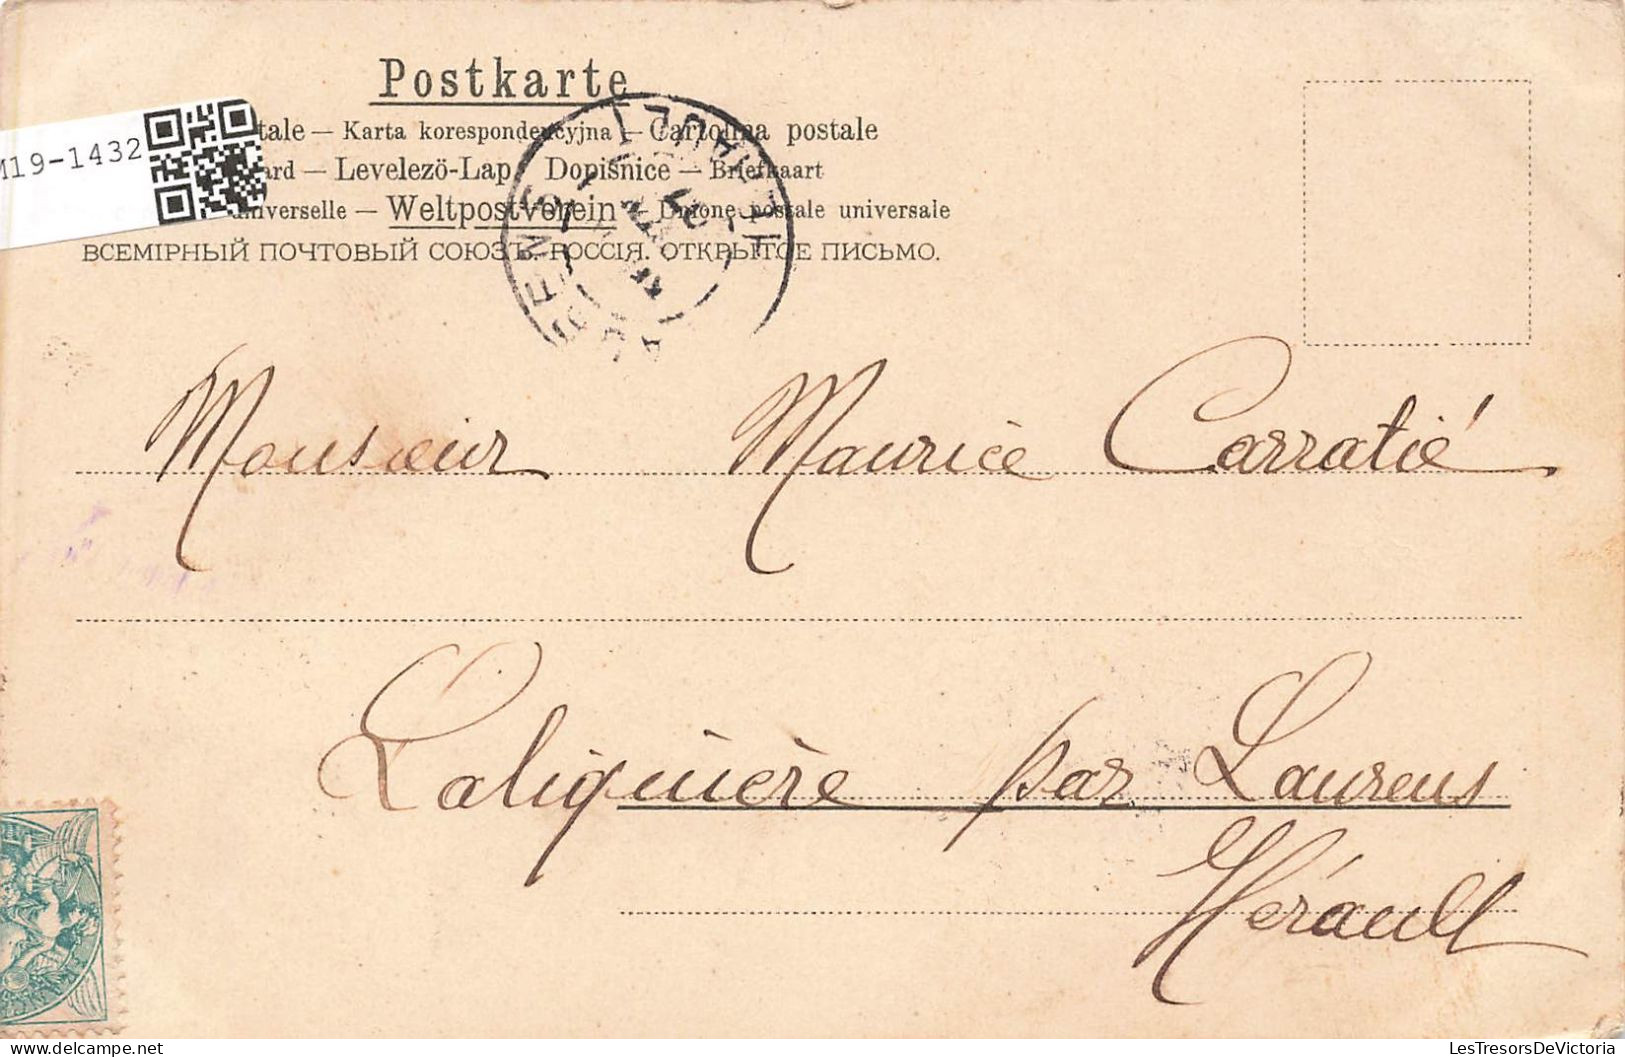 Postkarte
tale — Karta korespondencyjna — Cartolina postale
M19-1432
ard — Levelező-Lap Dopisnice — Briefkaart
niverselle — Weltpostverein — Unione postale universale
ВСЕМІРНЫЙ ПОЧТОВЫЙ СОЮЗЪ. РОССІЯ. ОТКРЫТОЕ ПИСЬМО.
HÉRAULT
Monsieur Maurice Carratié
Laliquière par Laurens
Hérault
LesTresorsDeVictoria
LesTresorsDeVictoria.com